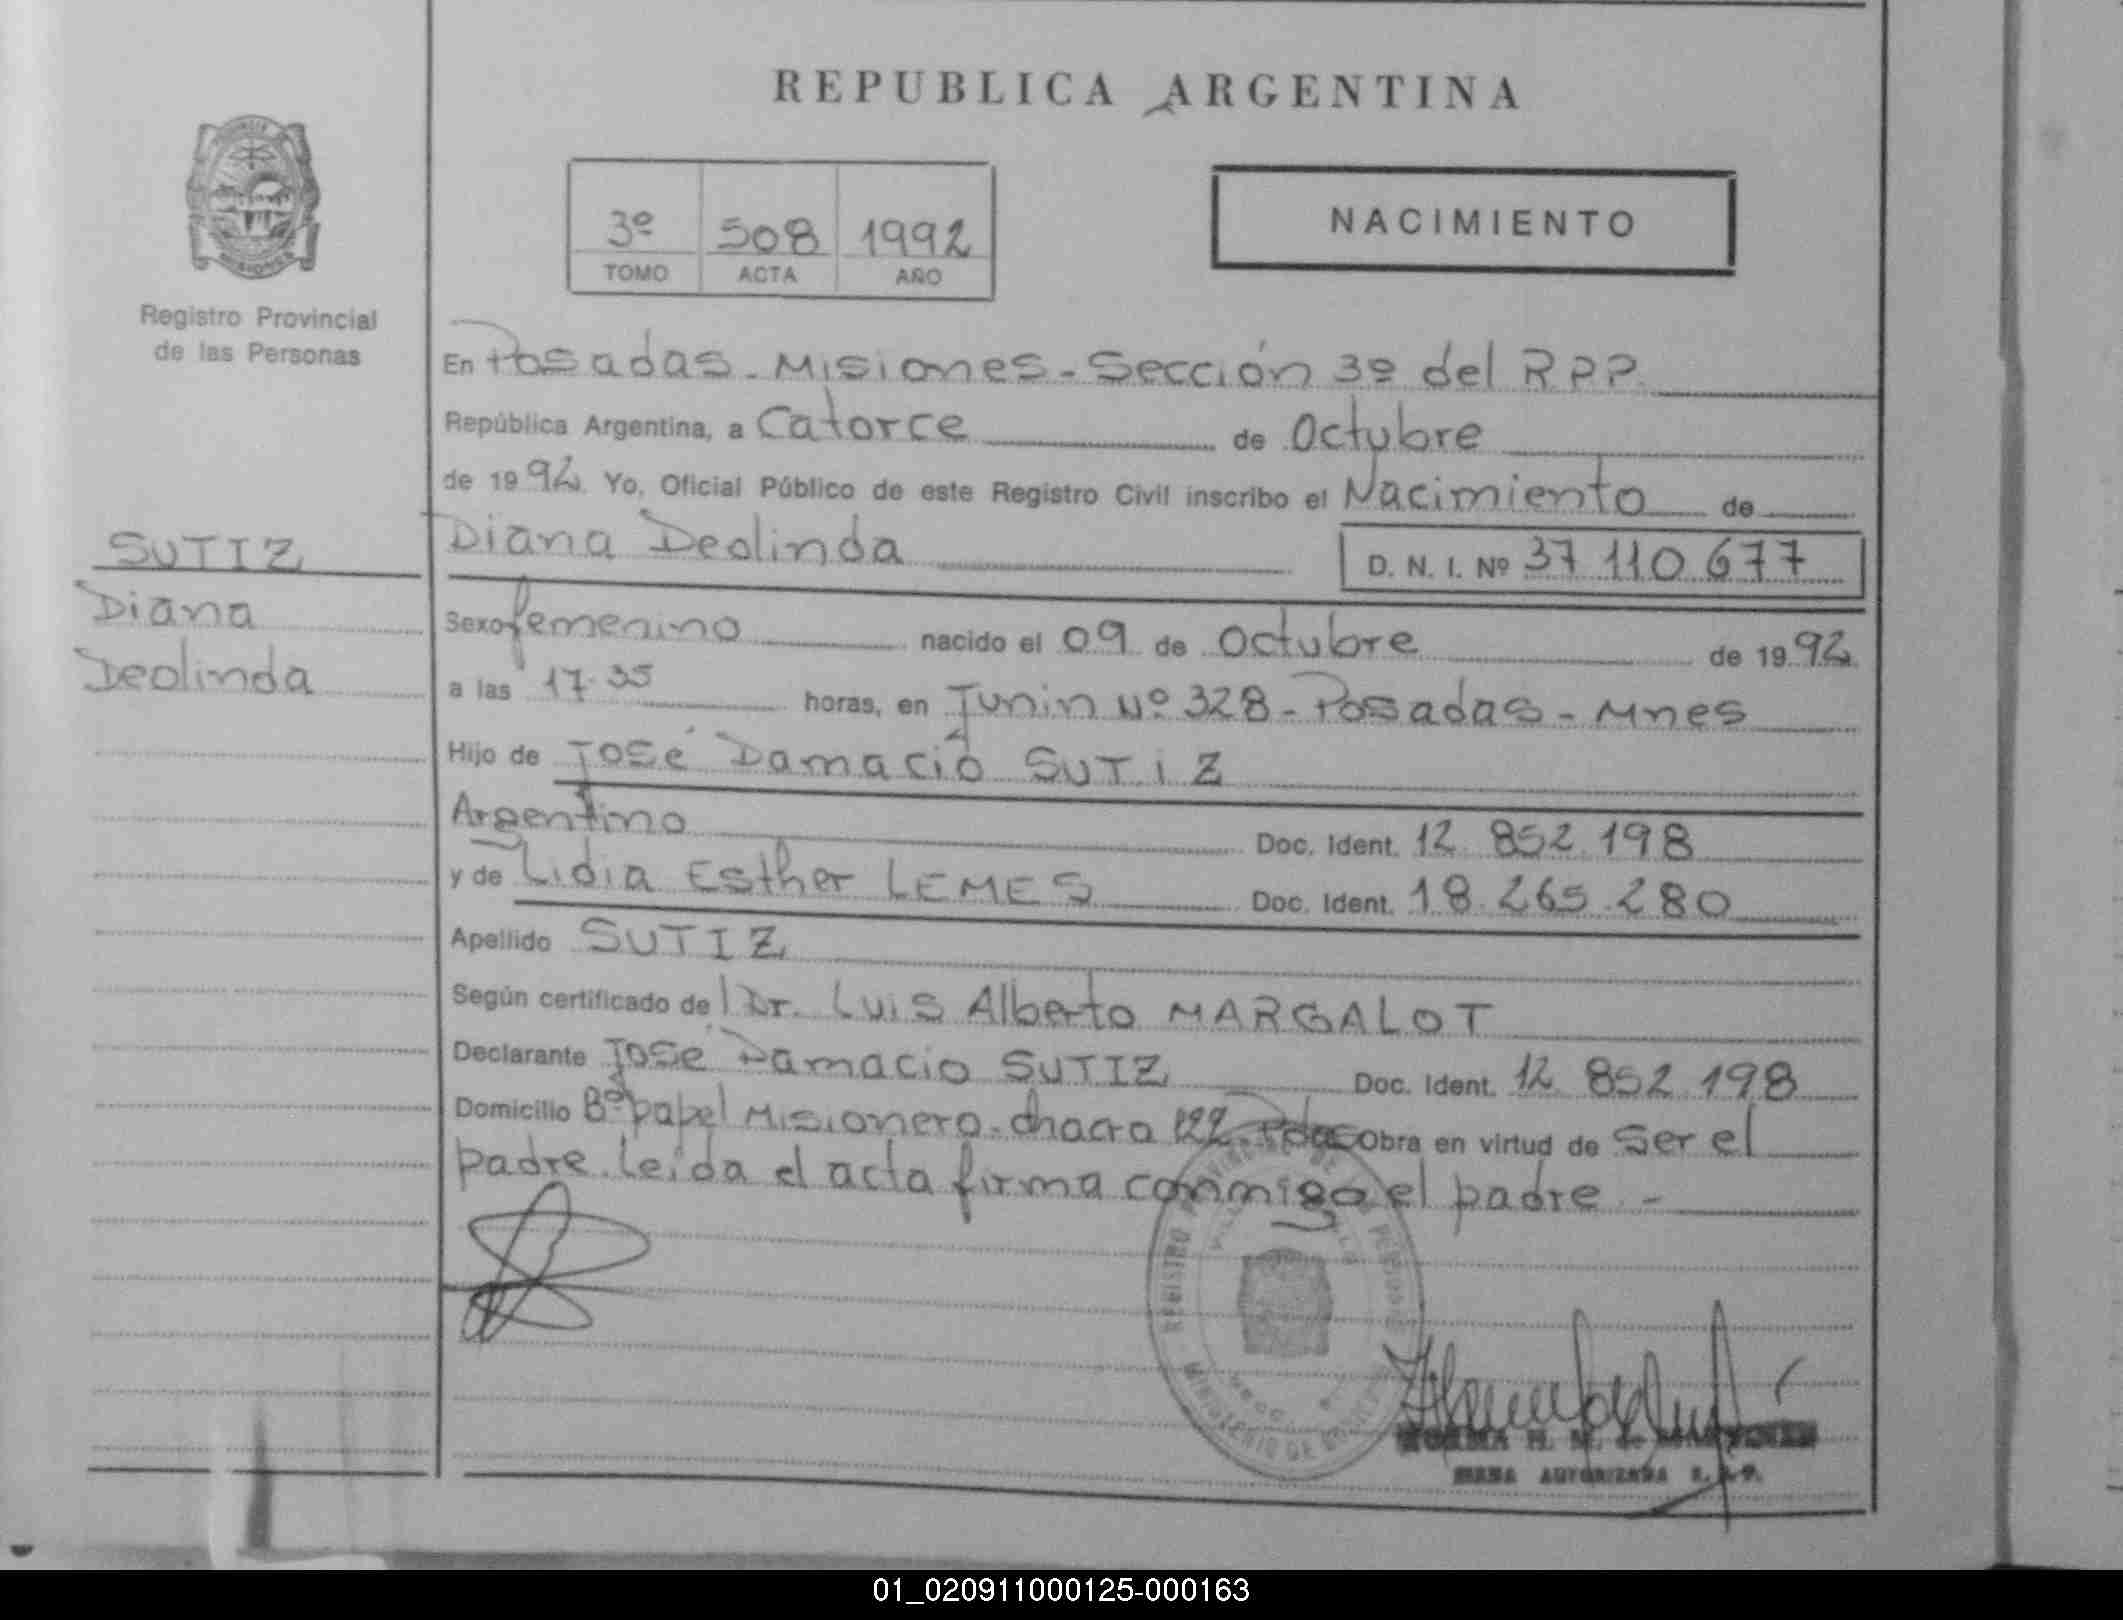 REPUBLICA ARGENTINA
MISIONES
Registro Provincial
de las Personas
3º 508 1992
TOMO ACTA AÑO
NACIMIENTO
En Posadas - Misiones - Sección 3º del R.P.P.
República Argentina, a Catorce de Octubre
de 1992 Yo, Oficial Público de este Registro Civil inscribo el Nacimiento de
SUTIZ
Diana
Deolinda
Diana Deolinda D. N. I. Nº 37 110 677
Sexo femenino nacido el 09 de Octubre de 1992
a las 17.35 horas, en Junin Nº 328 - Posadas - Mnes
Hijo de José Damacio SUTIZ
Argentino Doc. Ident. 12.852.198
y de Lidia Esther LEMES Doc. Ident. 18.265.280
Apellido SUTIZ
Según certificado de Dr. Luis Alberto MARGALOT
Declarante José Damacio SUTIZ Doc. Ident. 12.852.198
Domicilio Bº papel Misionero - chacra 122 - Pdas Obra en virtud de Ser el
padre. Leida el acta firma conmigo el padre. -
REGISTRO PROVINCIAL DE LAS PERSONAS
MINISTERIO DE GOBIERNO
AUTORIZADA
01_020911000125-000163